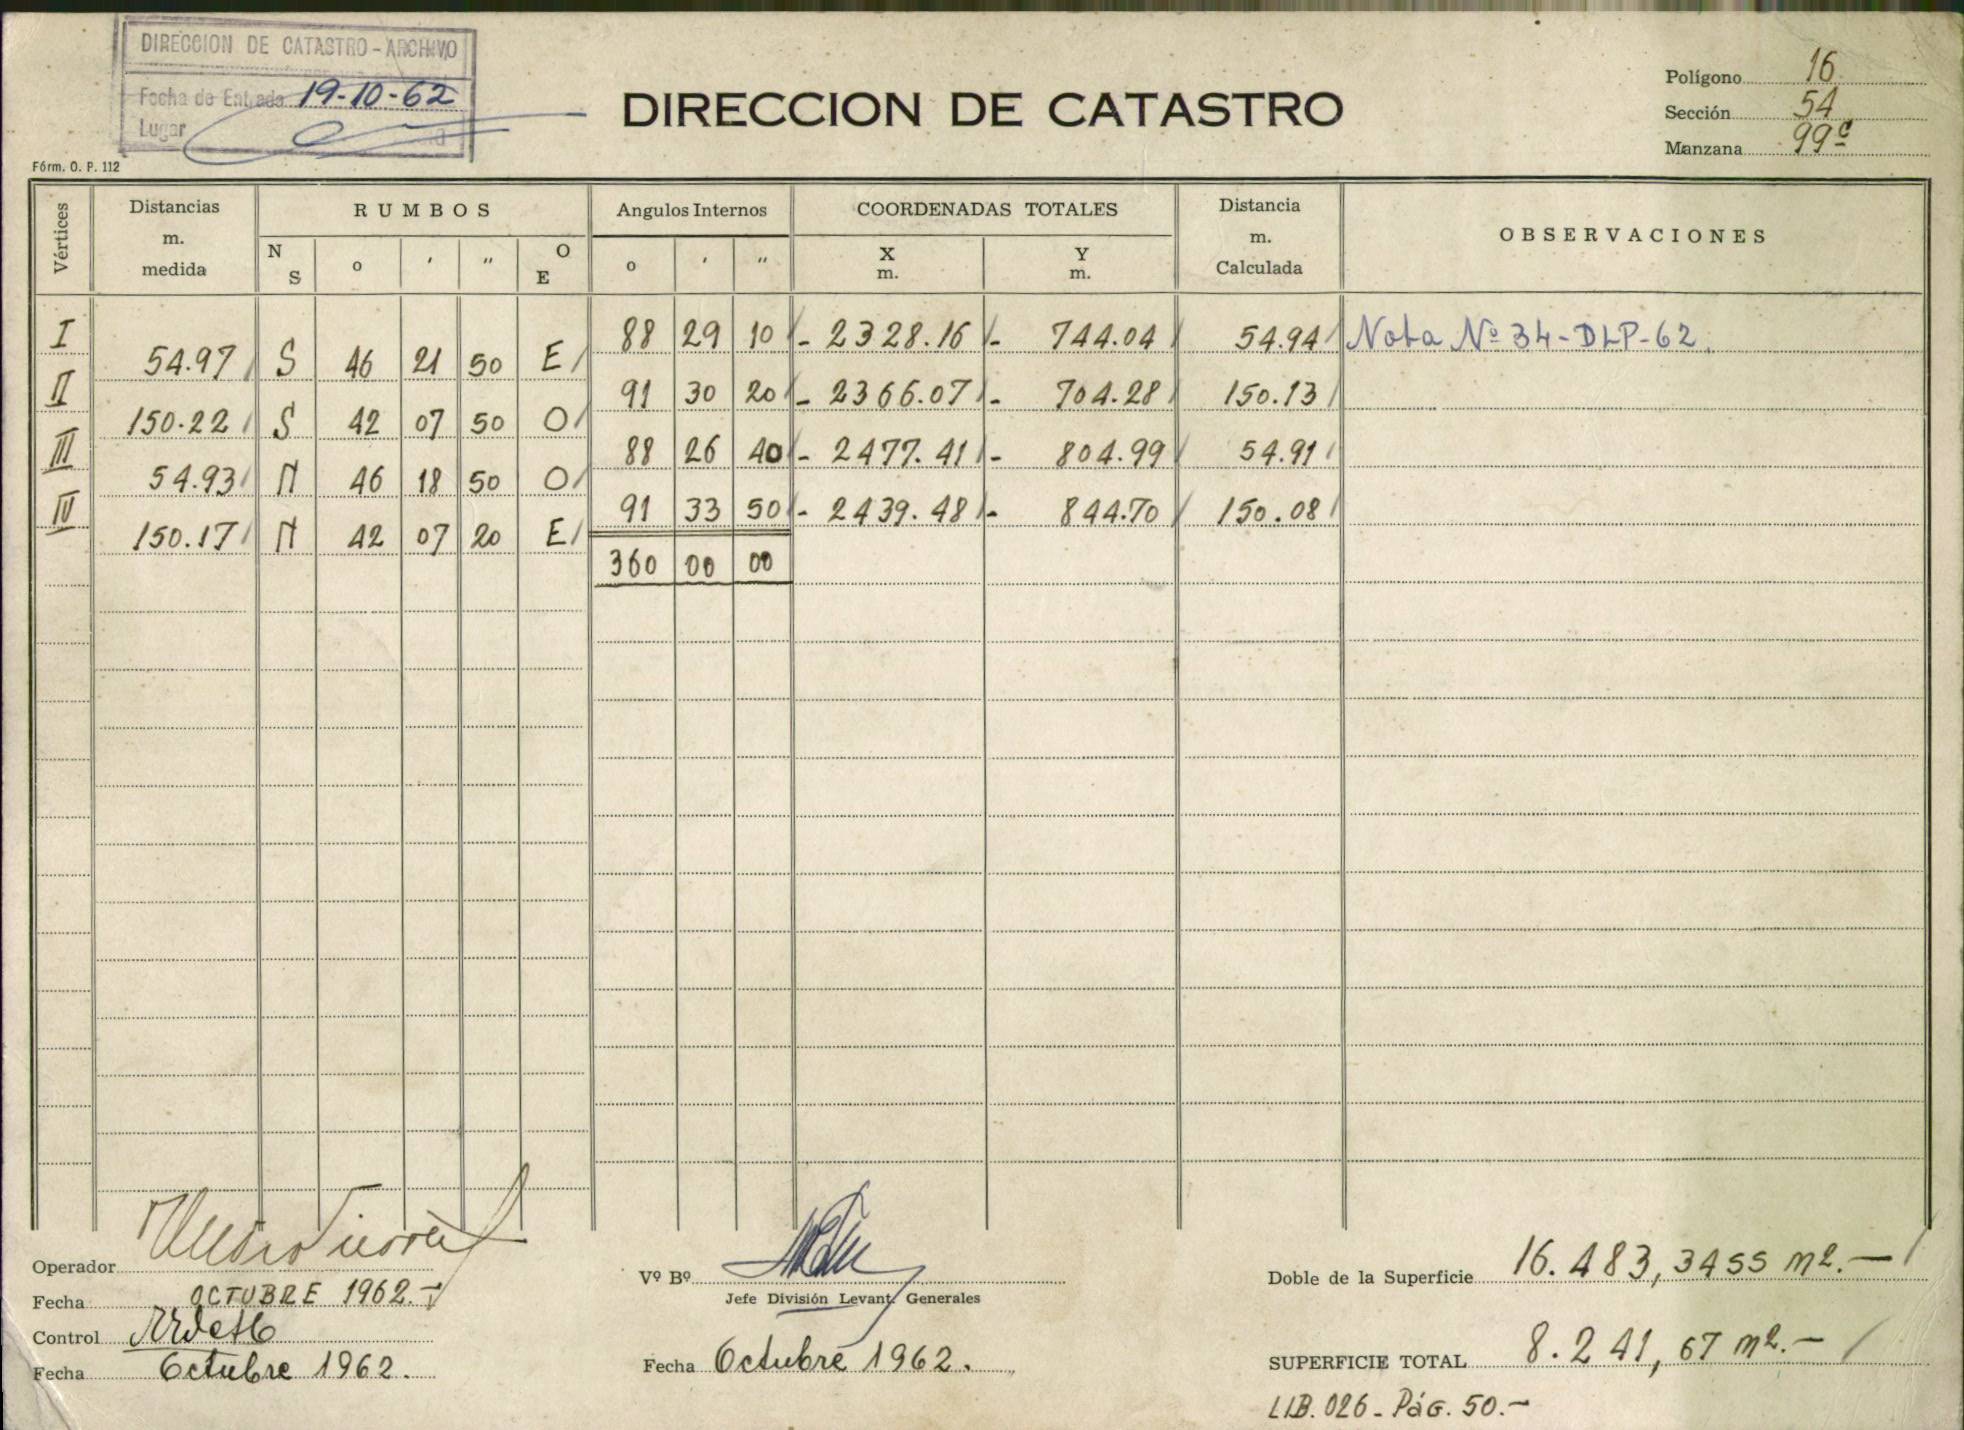 DIRECCION DE CATASTRO - ARCHIVO
Fecha de Entrada 19-10-62
Lugar
DIRECCION DE CATASTRO
Polígono 16
Sección 54
Manzana 99c
Fórm. O. P. 112
Vértices Distancias m. medida RUMBOS Angulos Internos COORDENADAS TOTALES Distancia m. Calculada OBSERVACIONES
N S o ' " O E o ' " X m. Y m.
I 88 29 10 - 2328.16 - 744.04 54.94 Nota Nº 34-DLP-62.
54.97 S 46 21 50 E
II 91 30 20 - 2366.07 - 704.28 150.13
150.22 S 42 07 50 O
III 88 26 40 - 2477.41 - 804.99 54.91
54.93 N 46 18 50 O
IV 91 33 50 - 2439.48 - 844.70 150.08
150.17 N 42 07 20 E
360 00 00
Operador
Fecha OCTUBRE 1962.-
Control
Fecha Octubre 1962.
Vº Bº
Jefe División Levant. Generales
Fecha Octubre 1962.
Doble de la Superficie 16.483,3455 m2.-
SUPERFICIE TOTAL 8.241,67 m2.-
LIB. 026 - Pág. 50.-